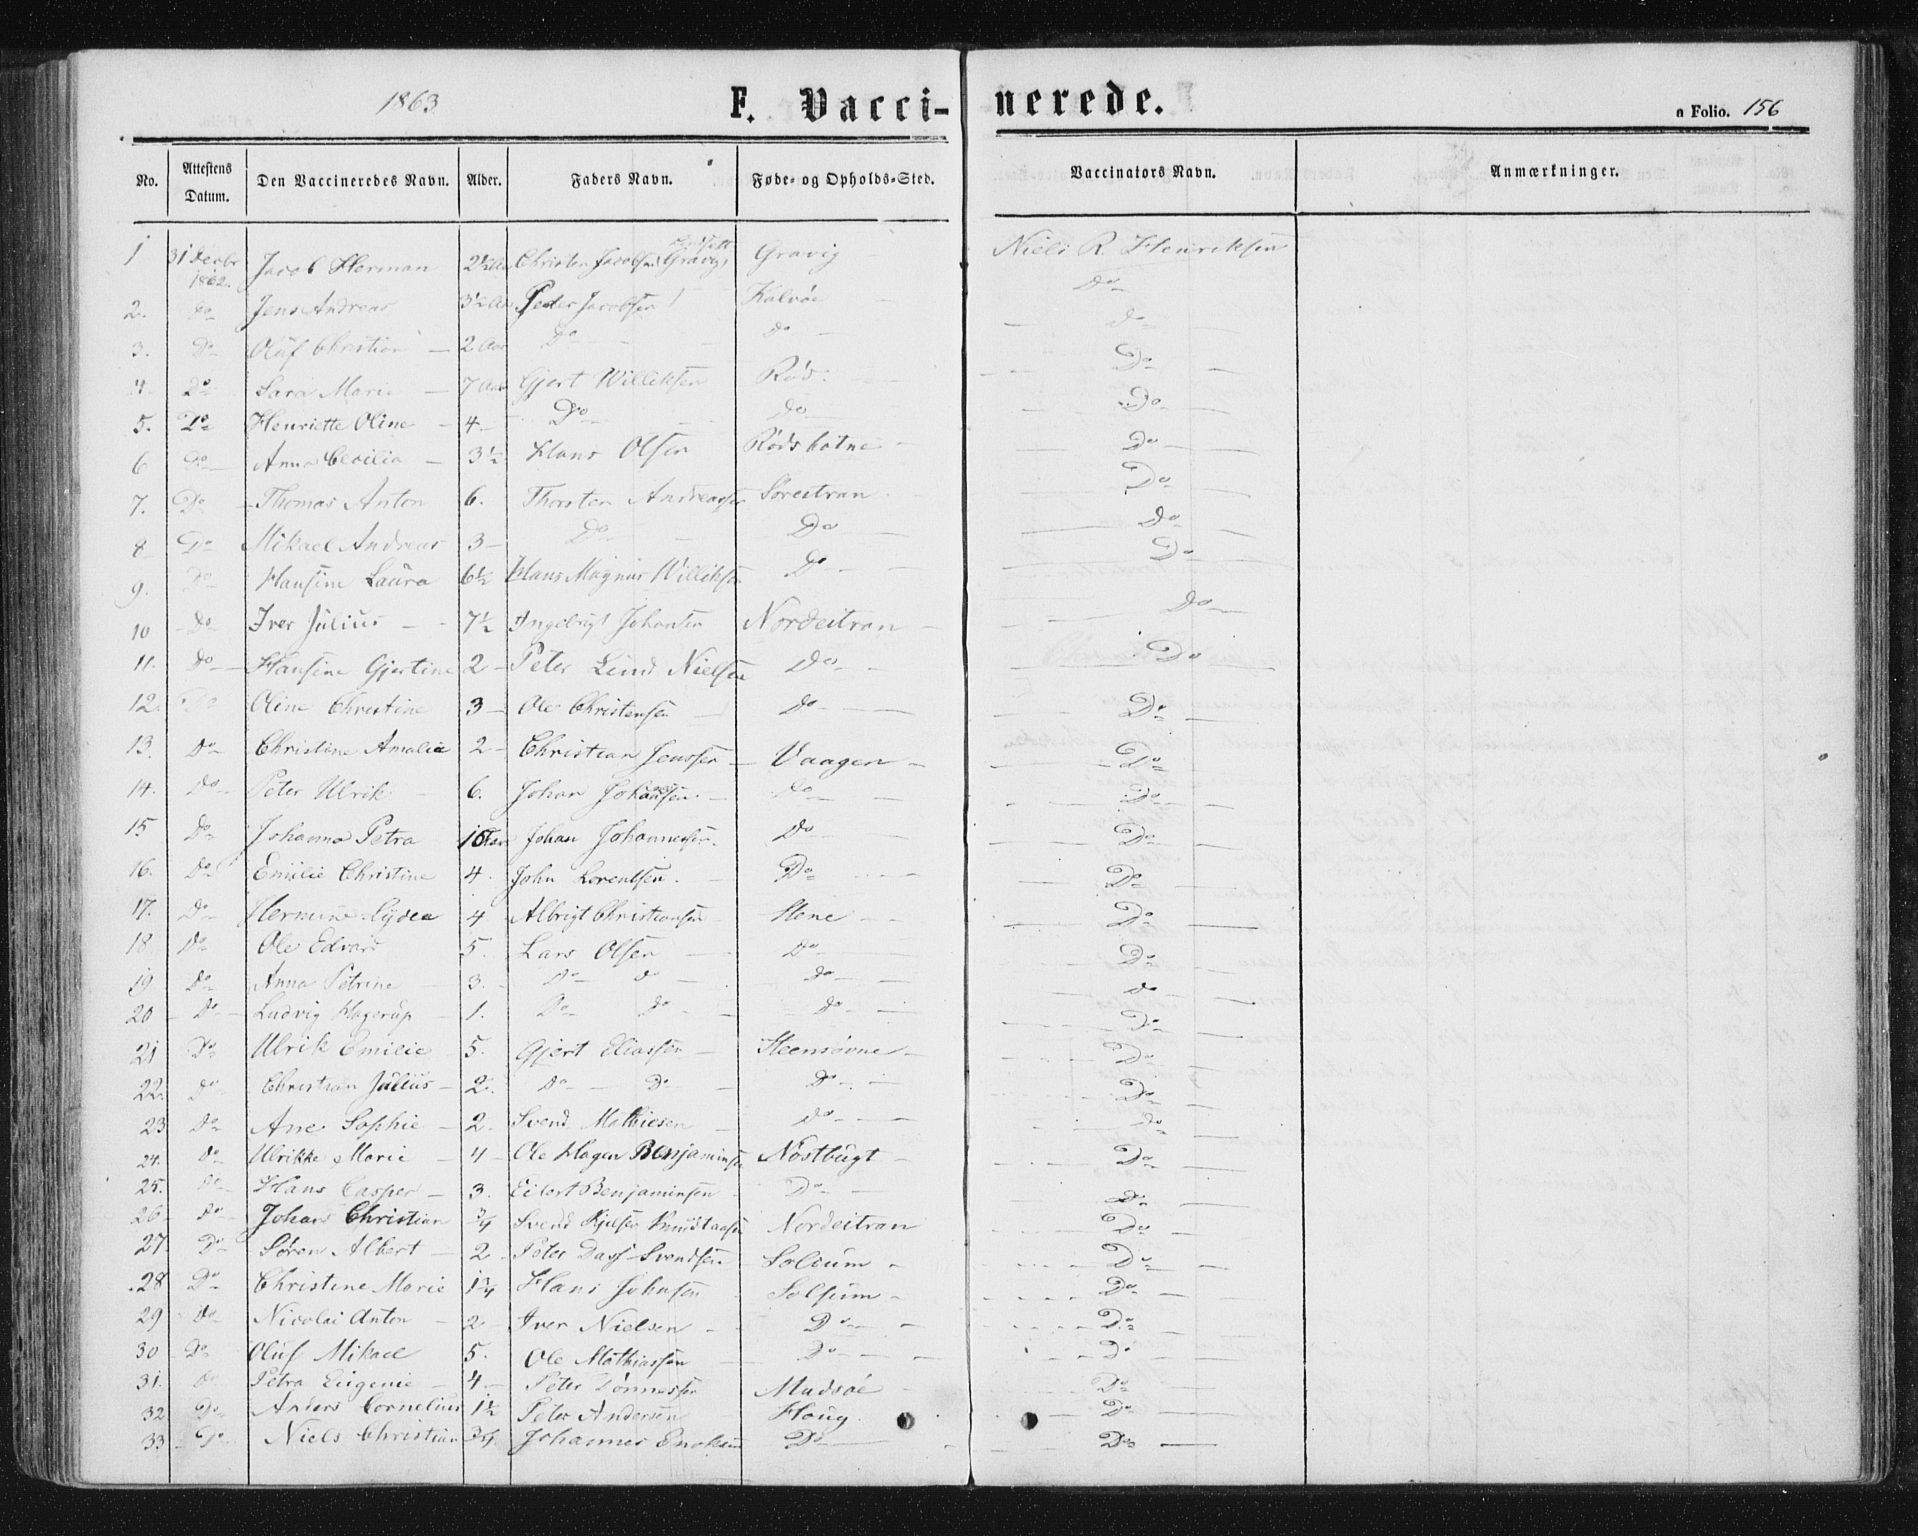 1863 F. Vacci-nerede. a Folio. 156
No. Attestens Datum. Den Vaccineredes Navn. Alder. Faders Navn. Føde- og Opholds-Sted. Vaccinators Navn. Anmærkninger.
1 31 Decbr 1862. Jacob Herman 2½ Aar Christen Jacobsen Gravig Niels R. Henriksen
2. Do Jens Andreas 3½ Aar Peder Jacobsen Kalvøe Do
3. Do Oluf Christian 2 Aar Do Do Do
4 Do Sara Marie 7 Aar Gjert Willeksen Rød. Do
5. Do Henriette Oline 4 Do Do Do
6 Do Anna Cecilia 3½ Hans Olsen Rødshatne Do
7. Do Thomas Anton 6. Thorsten Andreassen Søreitran Do
8 Do Mikael Andreas 3 Do Do Do
9. Do Hansine Laura 6½ Hans Magnus Willeksen Do Do
10 Do Iver Julius 7½ Ingebrigt Johansen Nordeitran Do
11. Do Hansine Gjertine 2 Peter Lund Nielsen Do Do
12. Do Oline Christine 3 Ole Christensen Do Do
13. Do Christine Amalie 2 Christian Jenssen Vaagen Do
14. Do Peter Ulrik 6. Johan Johansen Do Do
15 Do Johanna Petra 10 Aar Johan Johannesen. Do Do
16. Do Emilie Christine 4. John Lorentsen. Do Do
17. Do Hermine Lydea 4 Albrigt Christiansen Stene Do
18 Do Ole Edvard 5. Lars Olsen Do Do
19 Do Anna Petrine 3. Do do Do Do
20 Do Ludvig Hagerup 1. Do do Do Do
21 Do Ulrik Emilie 5. Gjert Eliassen Steensøvne Do
22. Do Christian Julius 2. Do Do Do Do
23 Do Ane Sophie 2. Svend Mathiesen Do Do
24. Do Ulrikke Marie 4 Ole Hagen Benjaminsen Nøstbugt Do
25. Do Hans Casper 3. Eilert Benjaminsen Do Do
26 Do Johans Christian ¾ Svend Knudtasen Nordeitran Do
27. Do Søren Albert 2 Peter Dass Svendsen Solsum Do
28 Do Christine Marie 1¾ Hans Johnsen Solsum Do
29 Do Nicolai Anton 2 Iver Nielsen Do Do
30 Do Oluf Mikael 5. Ole Mathiassen Do Do
31. Do Petra Eugenie 4 Peter Tønnesen Madsøe Do
32 Do Anders Cornelius 1½ Peter Andersen Houg. Do
33 Do Niels Christian ¾ Johannes Enoksen Do Do